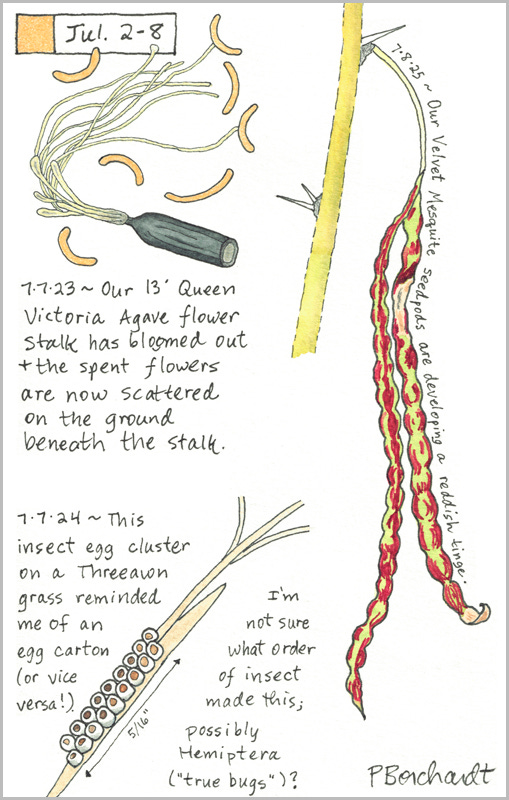 Jul. 2-8
7.7.23 ~ Our 13' Queen
Victoria Agave flower
stalk has bloomed out
+ the spent flowers
are now scattered
on the ground
beneath the stalk.
7.8.25 ~ Our Velvet Mesquite seedpods are developing a reddish tinge.
7.7.24 ~ This
insect egg cluster
on a Threeawn
grass reminded
me of an
egg carton
(or vice
versa!).
5/16"
I'm
not sure
what order
of insect
made this;
possibly
Hemiptera
("true bugs")?
PBorchardt